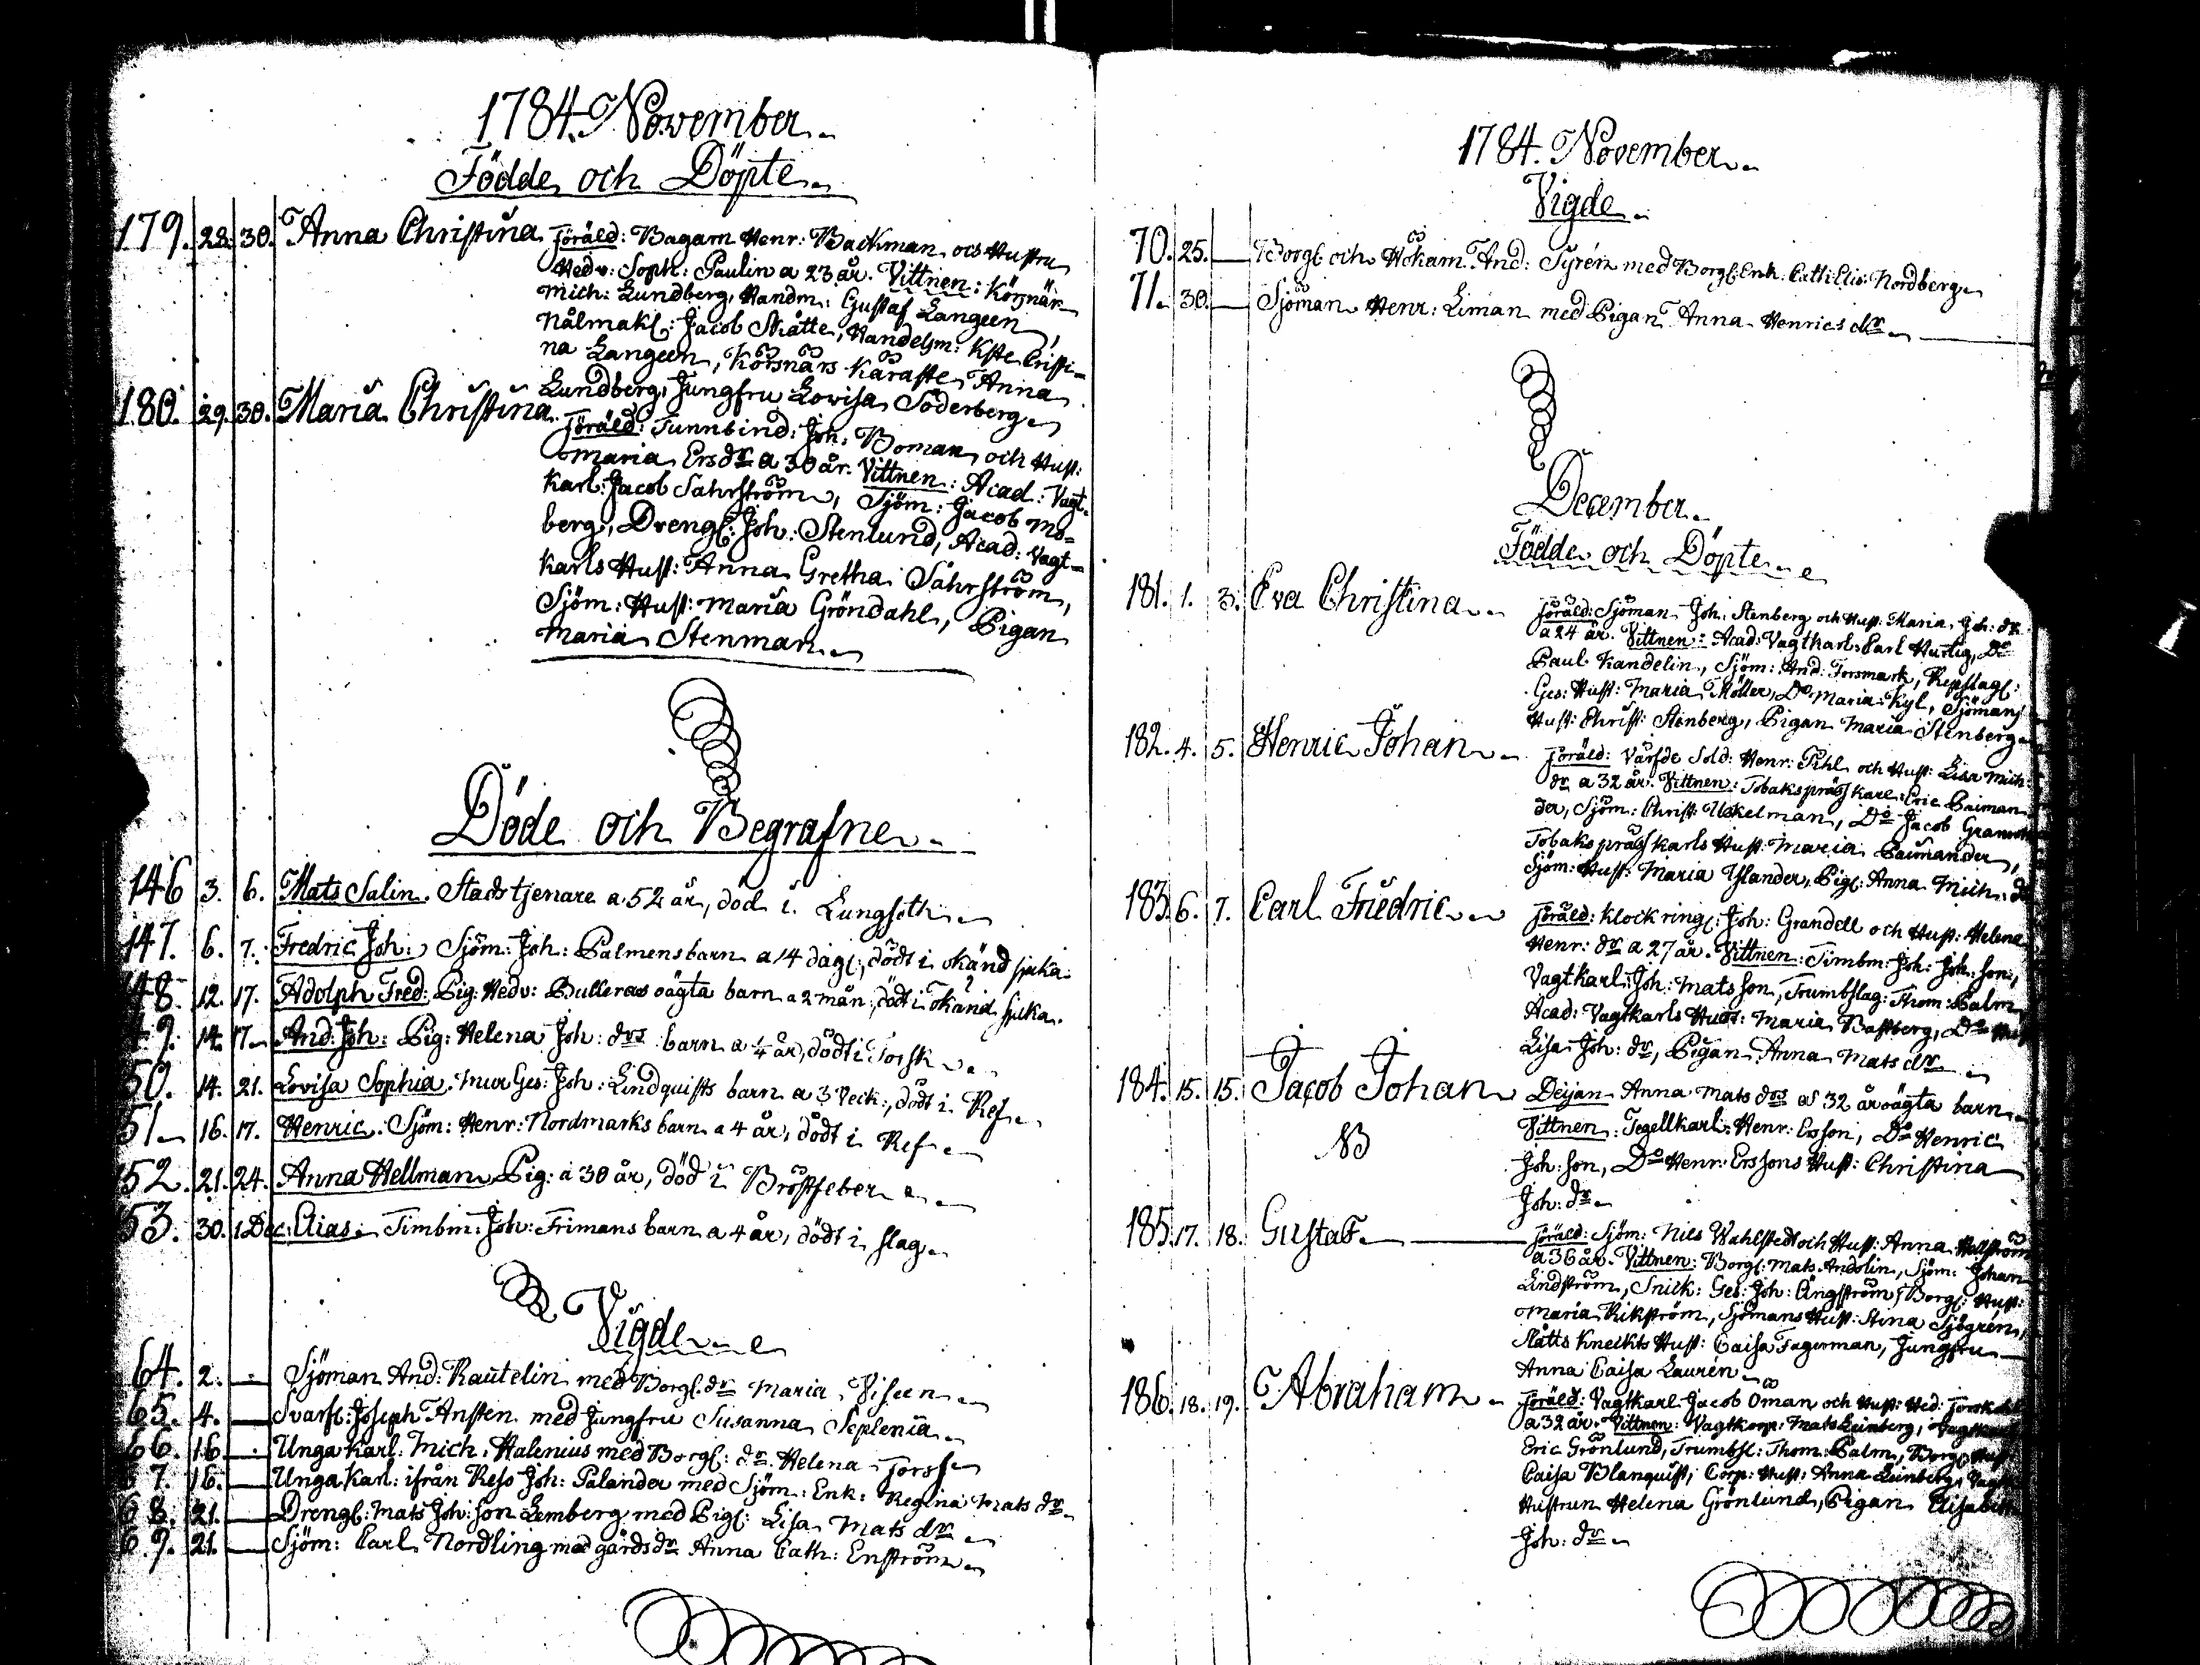 1784. November.
Födde och Döpte.
179. 28. 30. Anna Christina Föräld: Bagarn Henr: Backman och Hustru
Hedv: Soph: Paulin a 23 år. Vittnen: Körsnär
Mich: Lundberg, Handm: Gustaf Langeen,
Nålmak: Jacob Skåtte, Handelsm: Kste Cristi-
na Langeen, Körsnärs Käraste Anna
Lundberg, Jungfru Lovisa Söderberg
180. 29. 30. Maria Christina Föräld: Tunnbind: Joh: Boman och Hust:
Maria Ersdr a 30 år. Vittnen: Acad: Vagt-
karl: Jacob Sahrström, Sjöm: Jacob Mo-
berg, Dreng: Joh: Stenlund, Acad: Vagt-
karls Hust: Anna Gretha Sahrström,
Sjöm: Hust: Maria Gröndahl, Pigan
Maria Stenman
Döde och Begrafne
146 3. 6. Mats Salin. Stads tjenare a 52 år, död i Lungsoth
147. 6. 7. Fredric Joh: Sjöm: Joh: Palmens barn a 14 dag:, dödt i okänd sjuka.
48. 12. 17. Adolph Fred: Pig: Hedv: Bulleras oägta barn a 2 mån:, dödt i okänd sjuka.
49. 14. 17. And: Joh: Pig: Helena Joh: drs barn a 1/4 år, dödt i Torsk
50. 14. 21. Lovisa Sophia. Mur Ges: Joh: Lindquists barn a 3 Veck:, dödt i Ref
51 16. 17. Henric. Sjöm: Henr: Nordmarks barn a 4 år, dödt i Ref
52. 21. 24. Anna Hellman Pig: a 30 år, död i Bröstfeber
53. 30. 1 Dec: Elias. Timbm: Joh: Frimans barn a 4 år, dödt i slag
Vigde
64. 2. Sjöman And: Rautelin med Borg: dr Maria Viseen
65. 4. Svarf: Joseph Ansten med Jungfru Susanna Seplenia
66. 16. Unga Karl: Mich: Halenius med Borg: dr Helena Forss
67. 16. Unga Karl: ifrån Reso Joh: Palander med Sjöm: Enk: Regina Mats dr
68. 21. Dreng: Mats Joh: son Lemberg med Pig: Lisa Mats dr
69. 21. Sjöm: Carl Nordling med gårds dr Anna Cath: Enström
1784. November.
Vigde.
70. 25. Borg: och Hökarn And: Syrén med Borg: Enk: Cath: Elis: Nordberg
71. 30. Sjöman Henr: Liman med Pigan Anna Henrics dr
December.
Födde och Döpte
181. 1. 3. Eva Christina Föräld: Sjöman Joh: Stenberg och Hust: Maria Joh: dr
a 24 år. Vittnen: Acad: Vagtkarl: Carl Hurtig, Do
Paul Kandelin, Sjöm: And: Forsmark, Repslag:
Ges: Hust: Maria Möller, Do Maria Kyl, Sjömans
Hust: Christ: Stenberg, Pigan Maria Stenberg
182. 4. 5. Henric Johan Föräld: Värfde Sold: Henr: Pihl och Hust: Lisa Mich:
dr a 32 år. Vittnen: Tobaksspräss karl: Eric Paiman
der, Sjöm: Christ: Uskelman, Do Jacob
Tobaks präss karls Hust: Maria Paimander,
Sjöm: Hust: Maria Ylander, Pig: Anna Mich: dr
183. 6. 7. Carl Friedric Föräld: Klockring: Joh: Grandell och Hust: Helena
Henr: dr a 27 år. Vittnen: Timbm: Joh: Joh: son,
Vagtkarl: Joh: Matsson, Trumbslag: Thom: Palm,
Acad: Vagtkarls Hust: Maria Bastberg, Do Hust
Lisa Joh: dr, Pigan Anna Mats dr
184. 15. 15. Jacob Johan Deijan Anna Mats drs a 32 år oägta barn
NB Vittnen: Tegellkarl: Henr: Ersson, Do Henric
Joh: son, Do Henr: Erssons Hust: Christina
Joh: dr
185. 17. 18. Gustaf. Föräld: Sjöm: Nils Wahlstedt och Hust: Anna Hallström
a 36 år. Vittnen: Borg: Mats Andolin, Sjöm: Johan
Lindström, Snick: Ges: Joh: Ängström, Borg: Hust:
Maria Rikström, Sjömans Hust: Stina Sjögrén,
Slåtts Kneckts Hust: Caisa Fagerman, Jungfru
Anna Caisa Laurén
186. 18. 19. Abraham Föräld: Vagtkarl Jacob Öman och Hust: Hed:
a 32 år. Vittnen: Vagtkorp: Mats Leinberg, Vagtkarl
Eric Grönlund, Trumbsl: Thom: Palm, Borg: Hust
Caisa Blanquist, Corp: Hust: Anna Leinberg, Vagtk
Hustrun Helena Grönlund, Pigan Elisabeth
Joh: dr